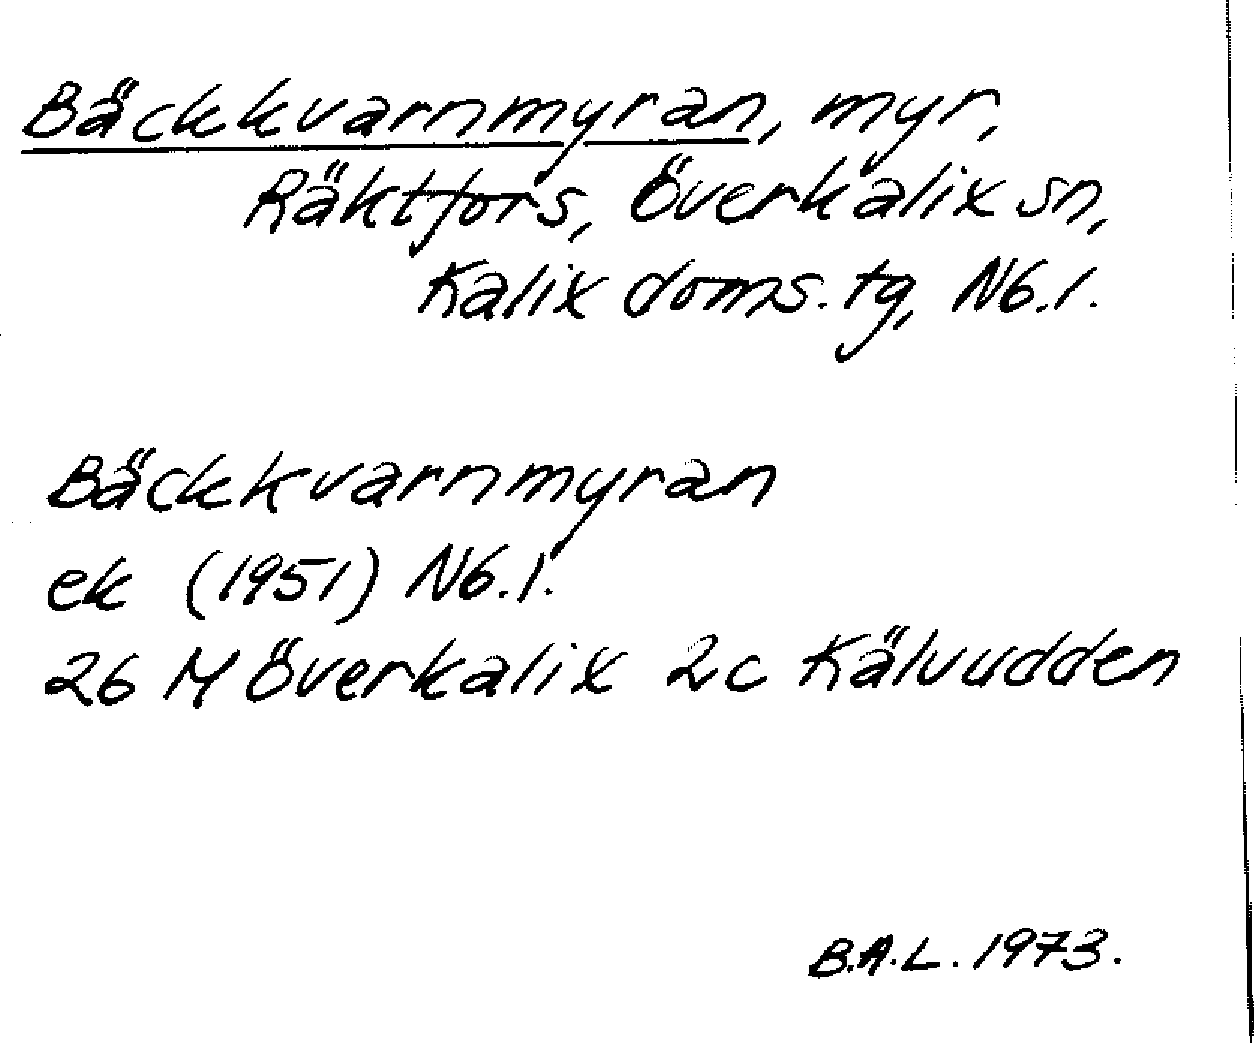 Bäckkvarnmyran, myr,
Räktfors, Överkalix sn,
Kalix doms. tg, Nb. l.
Bäckkvarnmyran
ek (1951) Nb. l.
26 M Överkalix 2c Kälvudden
B.A.L. 1973.